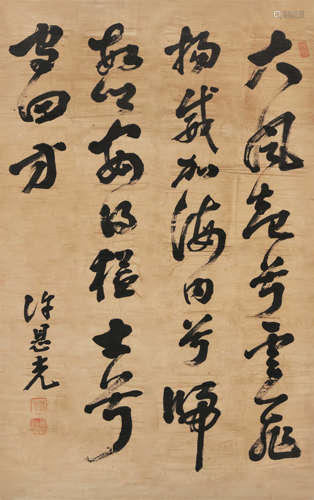 大風起兮雲飛
揚威加海內兮歸
故鄉安得猛士兮
守四方